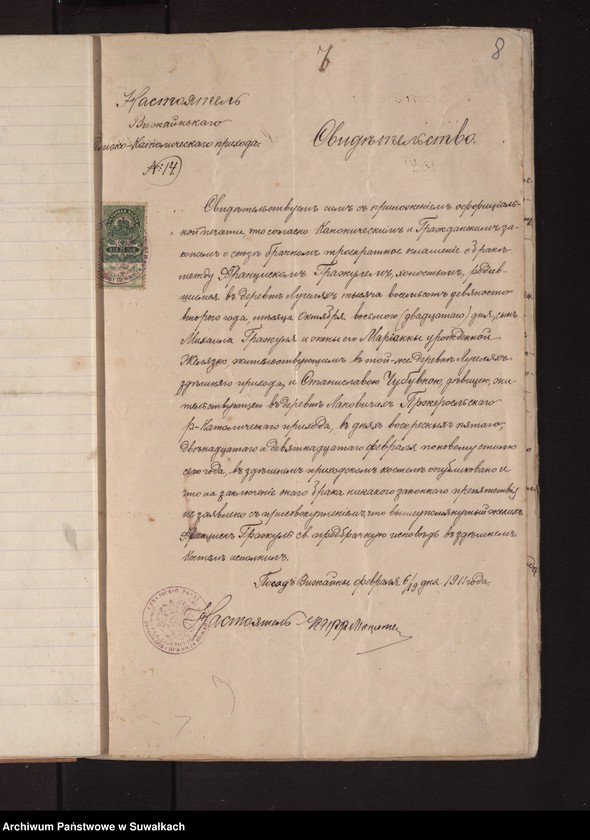 8
Настоятель
Вижайнскаго
Римско-Католическаго прихода.
№ 14
Свидѣтельство.
Свидѣтельствуемъ симъ съ приложеніемъ оффиціаль-
ной печати, что согласно Каноническимъ и Гражданскимъ за-
конамъ о союзѣ брачномъ троекратное оглашеніе о бракѣ
между Францискомъ Гражулемъ, холостымъ, родив-
шимся въ деревнѣ тысяча восемьсотъ девяносто
второго года, мѣсяца Октября восьмого (двадцатаго) дня, сынъ
Михаила Гражуля и жены его Маріанны урожденной
жительствующимъ въ той-же деревнѣ
здѣшняго прихода, и Станиславою дѣвицею, жи-
тельствующею въ деревнѣ Пржерослскаго
р-Католическаго прихода, въ дняхъ воскресныхъ пятаго,
двѣнадцатаго и девятнадцатаго февраля по новому стилю
сего года, въ здѣшнемъ приходскомъ костелѣ опубликовано и
что на заключеніе онаго брака никакого законнаго препятствія
не заявлено съ присовокупленіемъ, что вышеупомянутый женихъ
Францискъ Гражуль св. предбрачную исповѣдь въ здѣшнемъ
Костелѣ исполнилъ.
Посадъ Вижайны февраля 6/19 дня 1911 года.
Настоятель
Archiwum Państwowe w Suwałkach